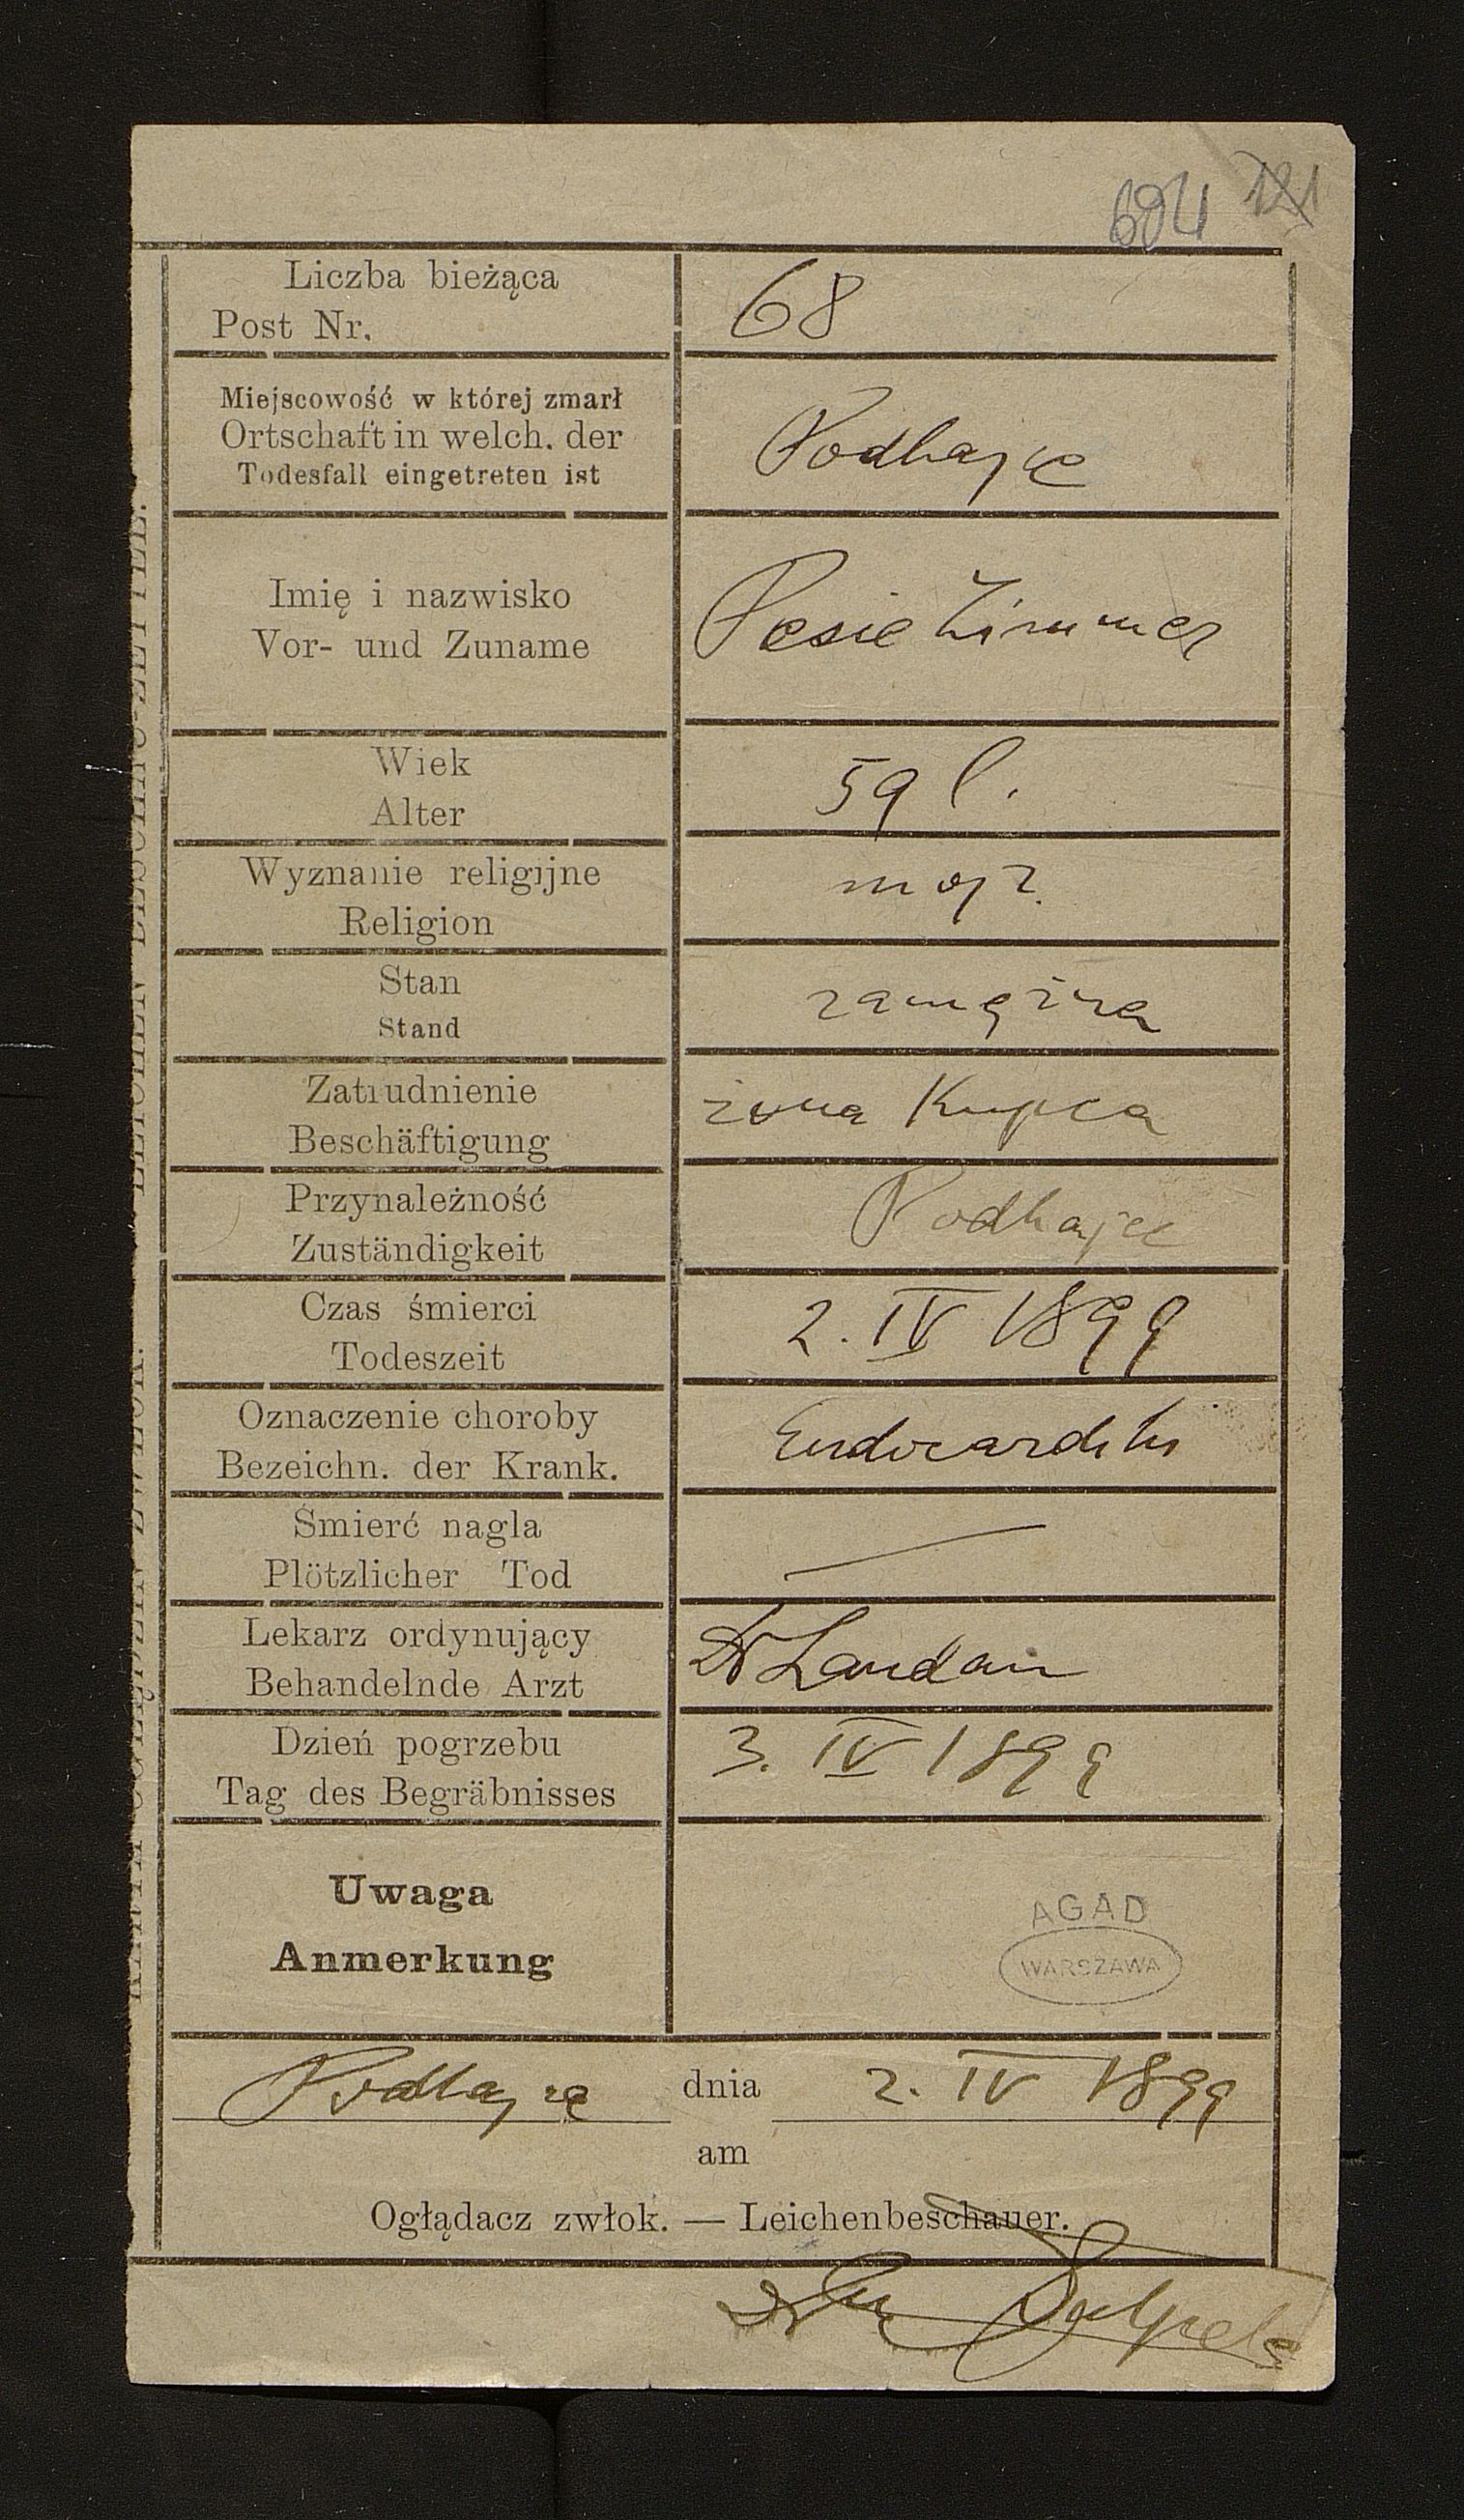 694 121
Liczba bieżąca
Post Nr.
68
Miejscowość w której zmarł
Ortschaft in welch. der
Todesfall eingetreten ist
Podhajce
Imię i nazwisko
Vor- und Zuname
Pesie Zimmer
Wiek
Alter
59 l.
Wyznanie religijne
Religion
mojż.
Stan
Stand
zamężna
Zatrudnienie
Beschäftigung
żona Kupca
Przynależność
Zuständigkeit
Podhajce
Czas śmierci
Todeszeit
2. IV 1899
Oznaczenie choroby
Bezeichn. der Krank.
Endocarditis
Śmierć nagla
Plötzlicher Tod
—
Lekarz ordynujący
Behandelnde Arzt
Dr Landau
Dzień pogrzebu
Tag des Begräbnisses
3. IV 1899
Uwaga
Anmerkung
AGAD
WARSZAWA
Podhajce dnia 2. IV 1899
am
Oglądacz zwłok. — Leichenbeschauer.
Dr